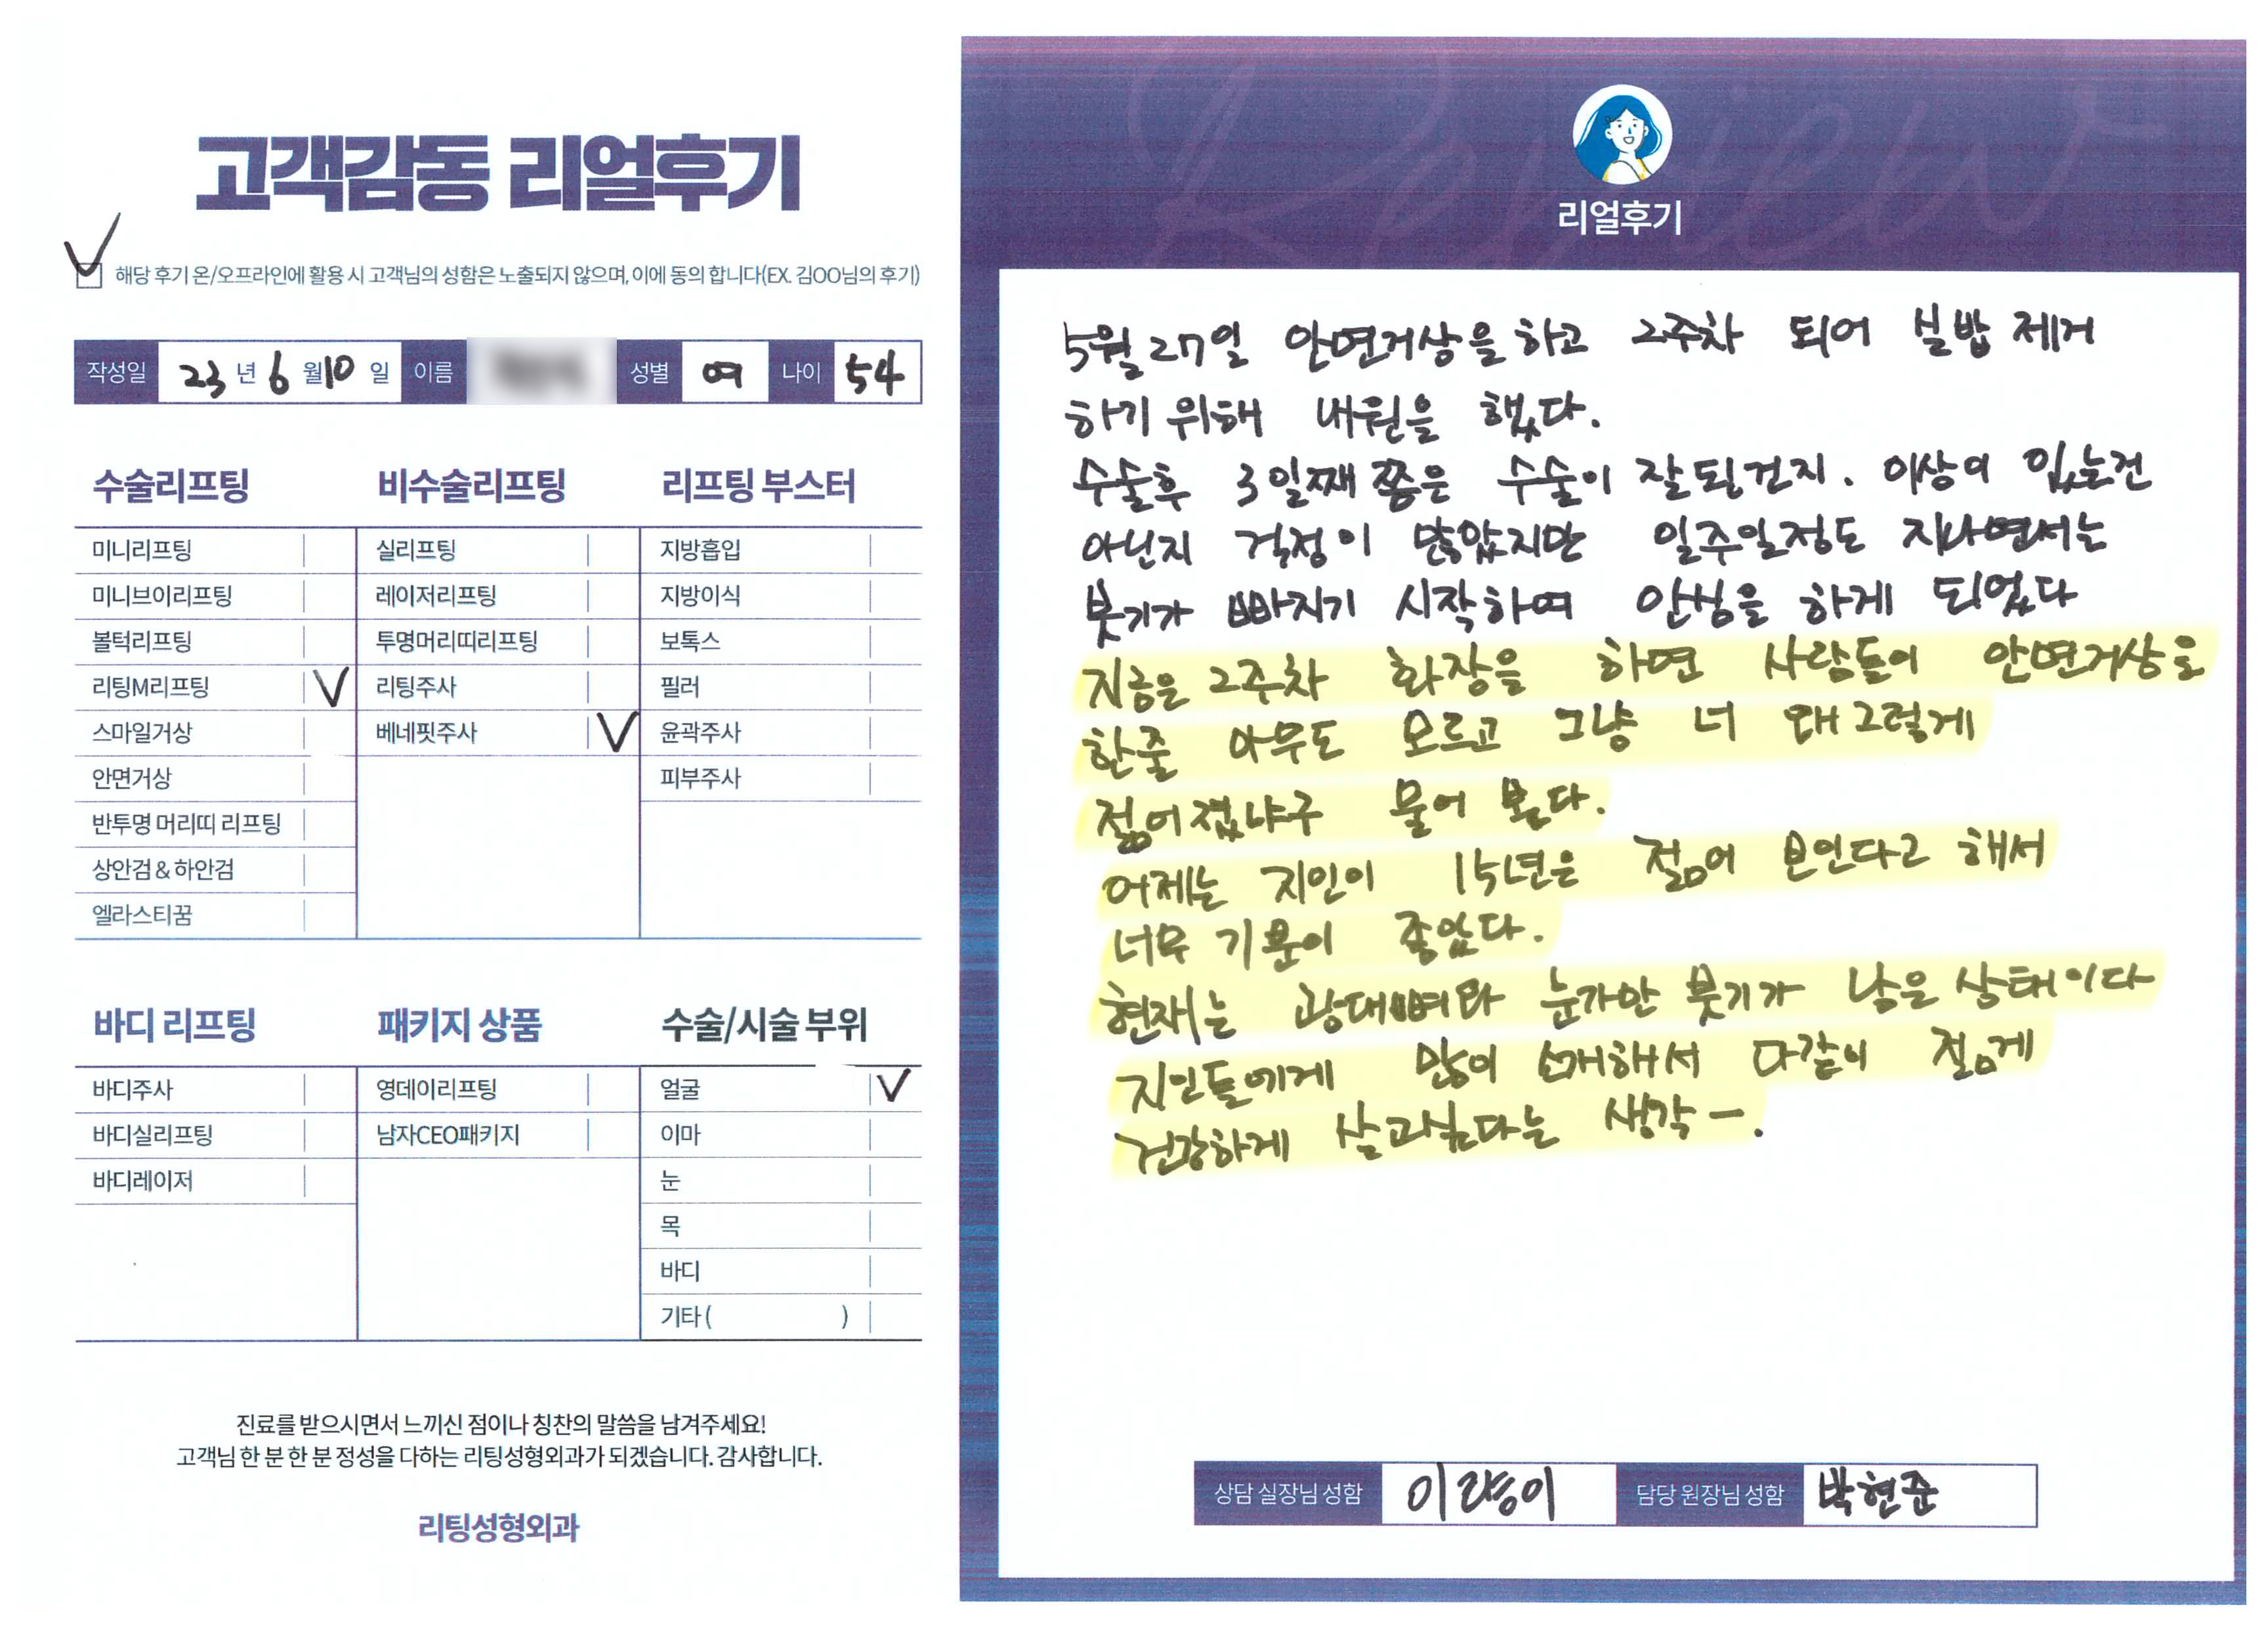 고객감동 리얼후기
해당 후기 온/오프라인에 활용 시 고객님의 성함은 노출되지 않으며, 이에 동의 합니다(EX. 김OO님의 후기)
작성일 23 년 6 월 10 일 이름 성별 여 나이 54
수술리프팅
미니리프팅
미니브이리프팅
볼턱리프팅
리팅M리프팅 V
스마일거상
안면거상
반투명 머리띠 리프팅
상안검 & 하안검
엘라스티꿈
비수술리프팅
실리프팅
레이저리프팅
투명머리띠리프팅
리팅주사
베네핏주사 V
리프팅 부스터
지방흡입
지방이식
보톡스
필러
윤곽주사
피부주사
바디 리프팅
바디주사
바디실리프팅
바디레이저
패키지 상품
영데이리프팅
남자CEO패키지
수술/시술 부위
얼굴 V
이마
눈
목
바디
기타 ( )
진료를 받으시면서 느끼신 점이나 칭찬의 말씀을 남겨주세요!
고객님 한 분 한 분 정성을 다하는 리팅성형외과가 되겠습니다. 감사합니다.
리팅성형외과
Review
리얼후기
5월 27일 안면거상을 하고 2주차 되어 실밥 제거
하기 위해 내원을 했다.
수술후 3일째 쯤은 수술이 잘된건지. 이상이 있는건
아닌지 걱정이 많았지만 일주일정도 지나면서는
붓기가 빠지기 시작하여 안심을 하게 되었다
지금은 2주차 화장을 하면 사람들이 안면거상을
한줄 아무도 모르고 그냥 너 왜 그렇게
젊어졌냐구 물어 본다.
어제는 지인이 15년은 젊어 보인다고 해서
너무 기분이 좋았다.
현재는 광대뼈와 눈가만 붓기가 남은 상태이다
지인들에게 많이 소개해서 다같이 젊게
건강하게 살고싶다는 생각ㅡ.
상담 실장님 성함 담당 원장님 성함 박현준